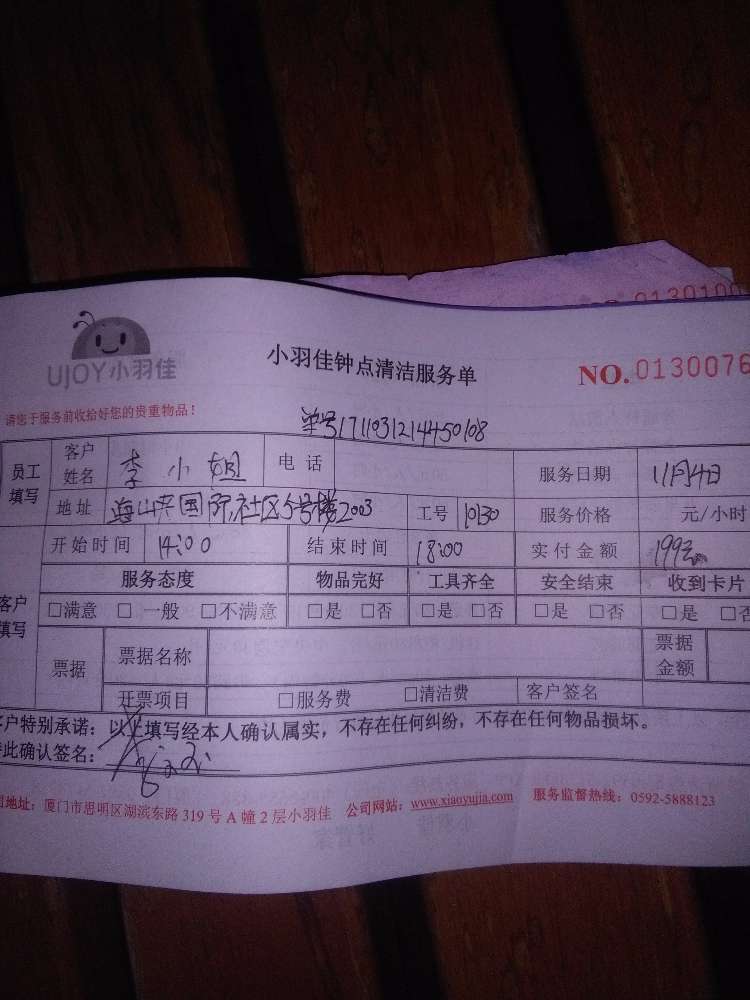 013010
UJOY小羽佳
小羽佳钟点清洁服务单
NO.0130076
请您于服务前收拾好您的贵重物品！
单号1711031214450108
员工填写 客户姓名 李小姐 电话 服务日期 11月4日
地址 海山 国际社区5号楼2003 工号 10130 服务价格 元/小时
开始时间 14:00 结束时间 18:00 实付金额 199元
客户填写 服务态度 物品完好 工具齐全 安全结束 收到卡片
□满意 □一般 □不满意 □是 □否 □是 □否 □是 □否 □是 □否
票据 票据名称 票据金额
开票项目 □服务费 □清洁费 客户签名
客户特别承诺：以上填写经本人确认属实，不存在任何纠纷，不存在任何物品损坏。
特此确认签名：
司地址：厦门市思明区湖滨东路 319 号 A 幢 2 层小羽佳 公司网站：www.xiaoyujia.com 服务监督热线：0592-5888123